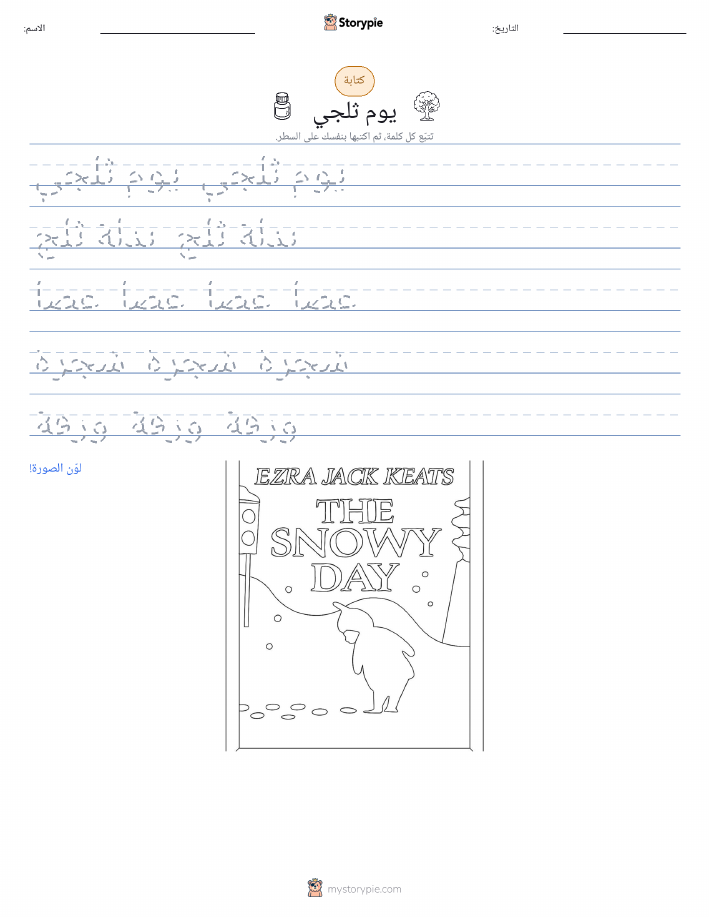 الاسم:
Storypie
التاريخ:
كتابة
يوم ثلجي
تتبّع كل كلمة، ثم اكتبها بنفسك على السطر.
يوم ثلجي يوم ثلجي
بدلة ثلج بدلة ثلج
عصا عصا عصا عصا
شجرة شجرة شجرة
ورقة ورقة ورقة
لوّن الصورة!
EZRA JACK KEATS
THE
SNOWY
DAY
mystorypie.com